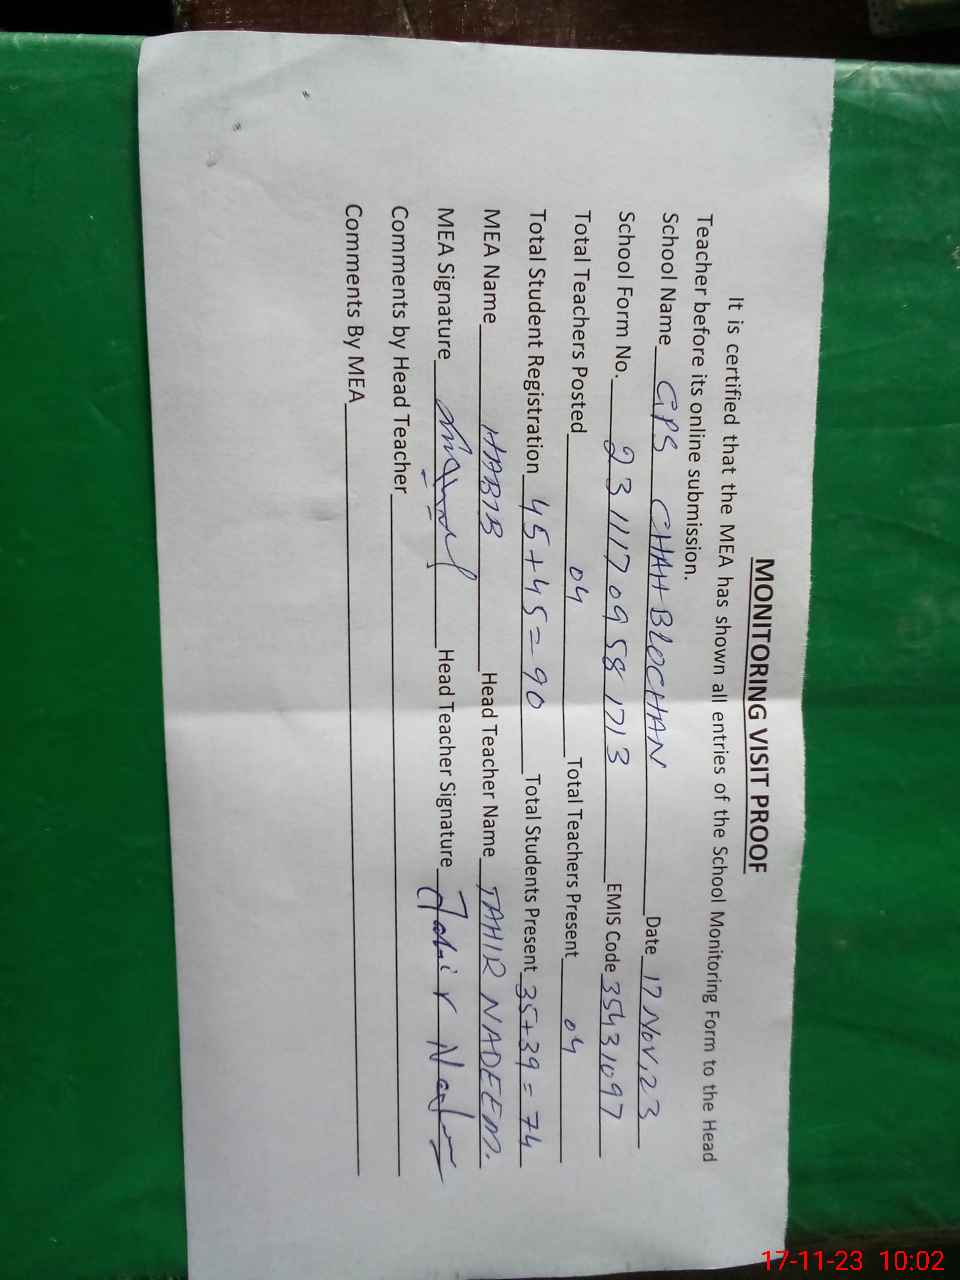 MONITORING VISIT PROOF
It is certified that the MEA has shown all entries of the School Monitoring Form to the Head
Teacher before its online submission.
School Name GPS CHAH BLOCHAN Date 17 Nov, 23
School Form No. 231117095817 13 EMIS Code 35431097
Total Teachers Posted 04 Total Teachers Present 04
Total Student Registration 45+45=90 Total Students Present 35+39=74
MEA Name HABIB Head Teacher Name TAHIR NADEEM.
MEA Signature Head Teacher Signature Tahir
Comments by Head Teacher
Comments By MEA
17-11-23 10:02